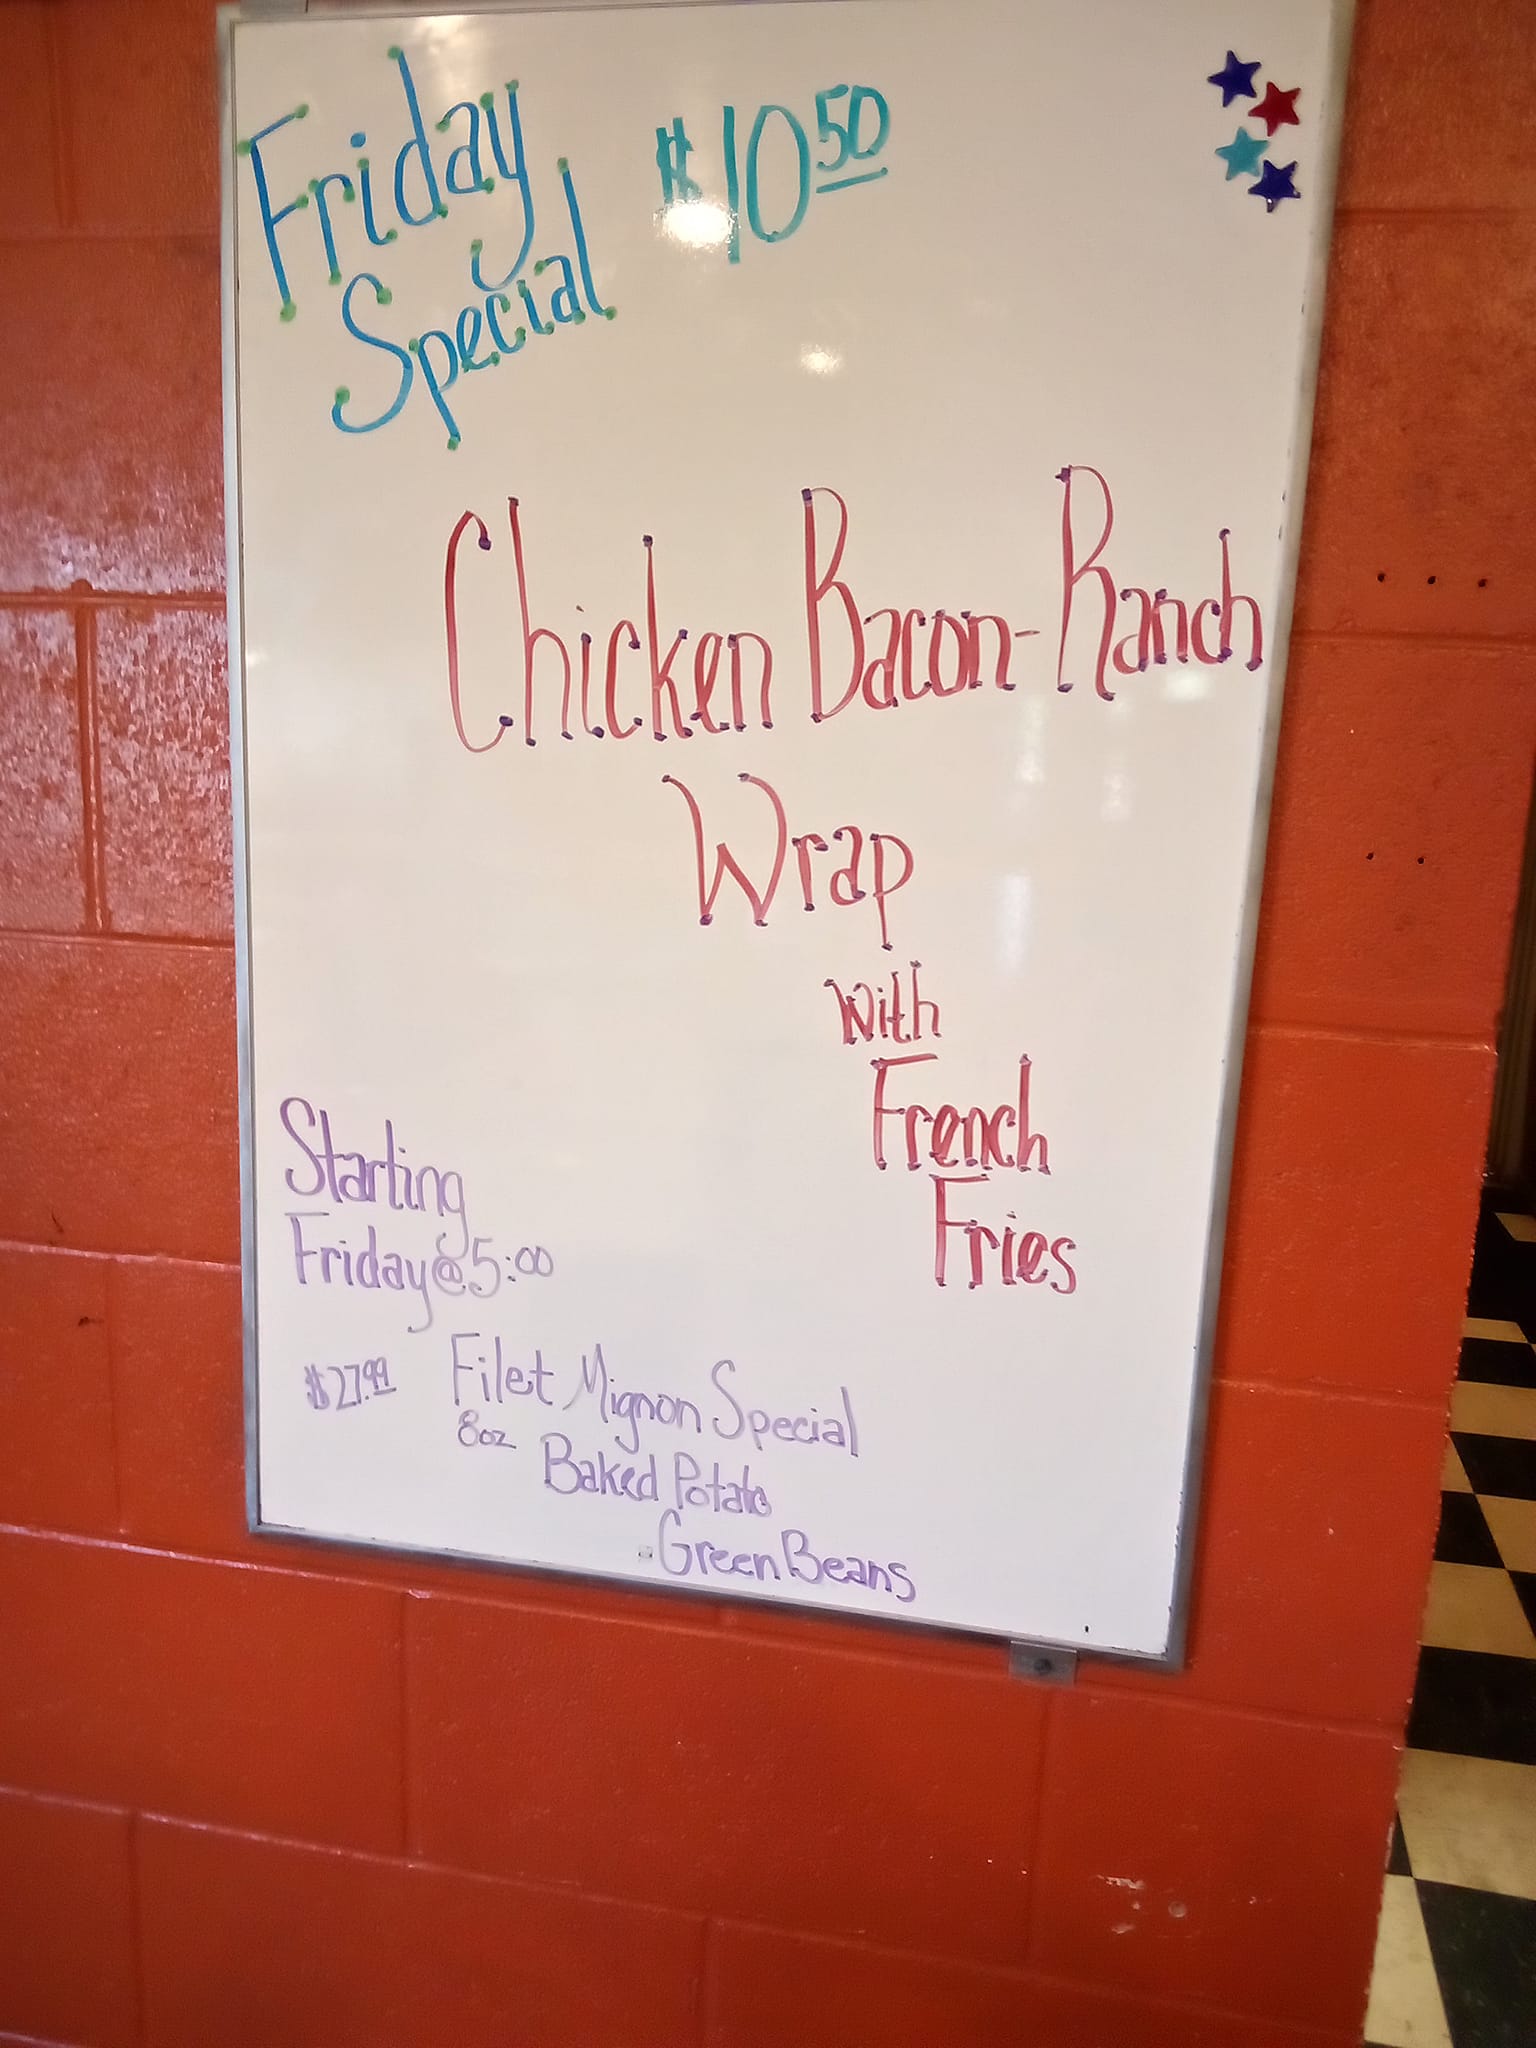 Friday $10 50
Special
Chicken Bacon-Ranch
Wrap
with
French
Fries
Starting
Friday @ 5:00
$27.99 Filet Mignon Special
8oz Baked Potato
Green Beans